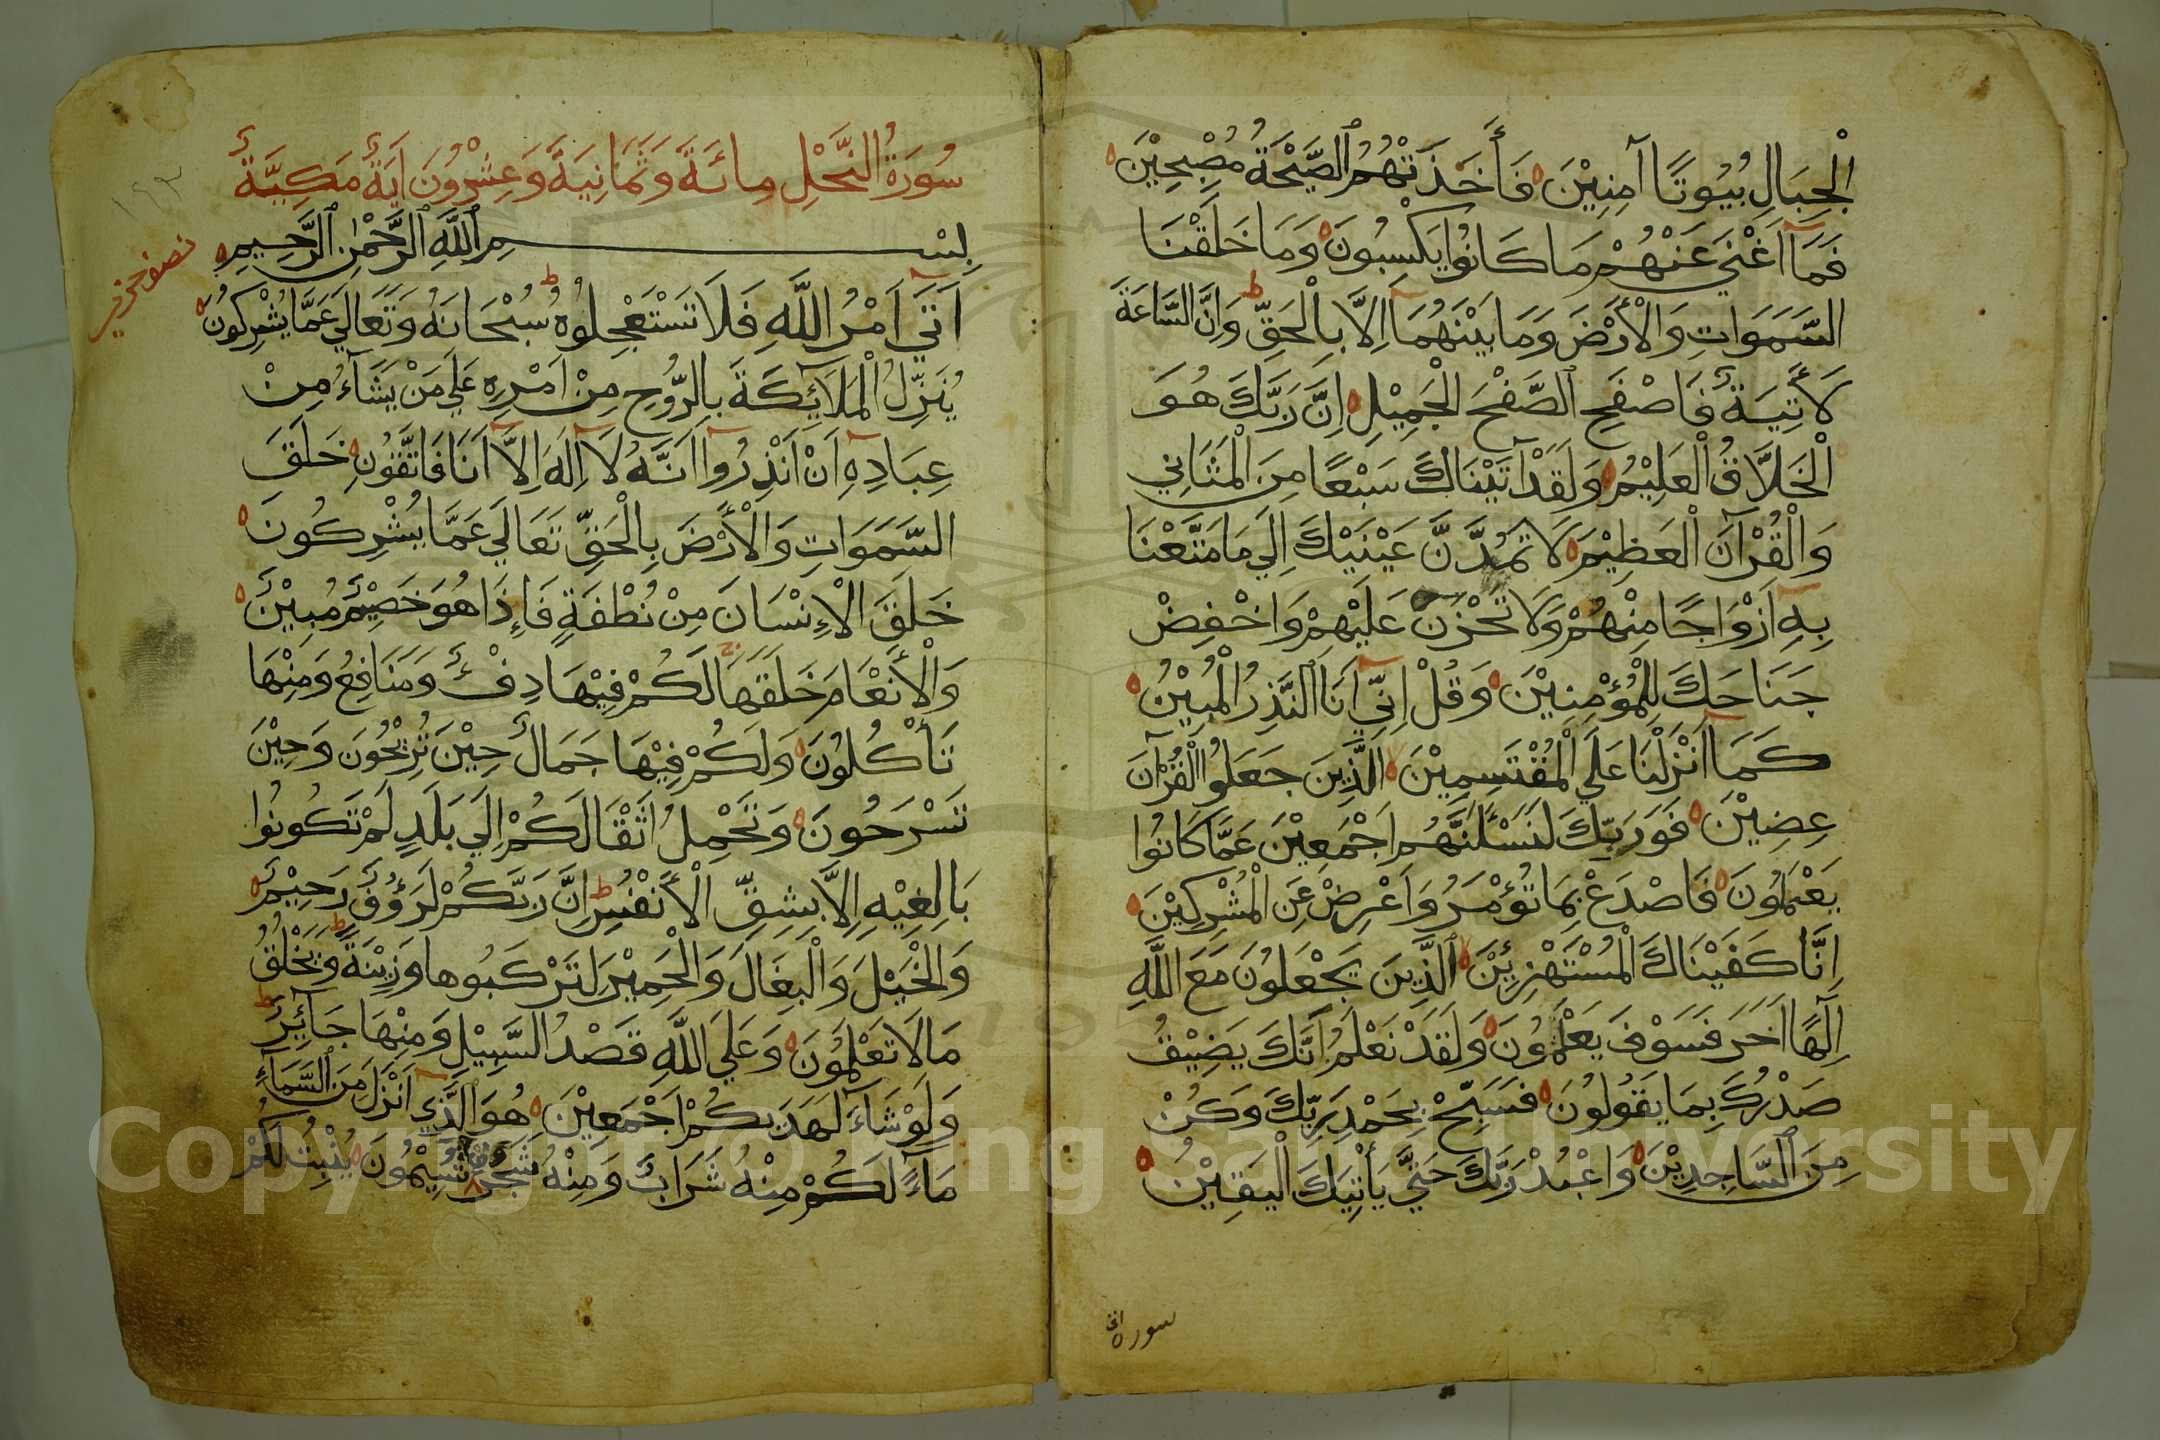 الْجِبَالِ بُيُوتًا آمِنِيْنَ فَأَخَذَتْهُمُ الصَّيْحَةُ مُصْبِحِيْنَ
فَمَآ اَغْنَي عَنْهُمْ مَا كَانُوْا يَكْسِبُونَ وَمَا خَلَقْنَا
السَّمَوَاتِ وَالْأَرْضَ وَمَا بَيْنَهُمَآ اِلَّا بِالْحَقِّ ط وَاِنَّ السَّاعَةَ
لَأَتِيَةٌ فَاصْفَحِ الصَّفْحَ الْجَمِيْلِ اِنَّ رَبَّكَ هُوَ
الْخَلَّاقُ الْعَلِيْمُ وَلَقَدْ آتَيْنَاكَ سَبْعًا مِنَ الْمَثَانِي
وَالْقُرْآنَ الْعَظِيْمَ لَا تَمُدَّنَّ عَيْنَيْكَ اِلَي مَا مَتَّعْنَا
بِهِ اَزْوَاجًا مِنْهُمْ وَلَا تَحْزَنْ عَلَيْهِمْ وَاخْفِضْ
جَنَاحَكَ لِلْمُؤْمِنِيْنَ وَقُلْ اِنِّيٓ اَنَا النَّذِرُ الْمُبِيْنُ
كَمَآ اَنْزَلْنَا عَلَي الْمُقْتَسِمِيْنَ لا الَّذِيْنَ جَعَلُوا الْقُرْآنَ
عِضِيْنَ فَوَرَبِّكَ لَنَسْئَلَنَّهُمْ اَجْمَعِيْنَ عَمَّا كَانُوْا
يَعْمَلُوْنَ فَاصْدَعْ بِمَا تُؤْمَرُ وَاَعْرِضْ عَنِ الْمُشْرِكِيْنَ
اِنَّا كَفَيْنَاكَ الْمُسْتَهْزِئِيْنَ لا الَّذِيْنَ يَجْعَلُوْنَ مَعَ اللَّهِ
اِلَهًا اَخَرَ فَسَوْفَ يَعْلَمُوْنَ وَلَقَدْ نَعْلَمُ اَنَّكَ يَضِيْقُ
صَدْرُكَ بِمَا يَقُولُوْنَ فَسَبِّحْ بِحَمْدِ رَبِّكَ وَكُنْ
مِنَ السَّاجِدِيْنَ وَاعْبُدْ رَبَّكَ حَتَّي يَأْتِيَكَ الْيَقِيْنُ
سُورَةُ النَّحْلِ مِائَةٌ وَثَمَانِيَةٌ وَعِشْرُوْنَ اَيَةً مَكِيَّةٌ
بِسْمِ اللَّهِ الرَّحْمٰنِ الرَّحِيمِ
اَتَيٓ اَمْرُ اللَّهِ فَلَا تَسْتَعْجِلُوْهُ ط سُبْحَانَهُ وَتَعَالَي عَمَّا يُشْرِكُوْنَ
يُنَزِّلُ الْمَلَآئِكَةَ بِالرُّوْحِ مِنْ اَمْرِهِ عَلَي مَنْ يَشَآءُ مِنْ
عِبَادِهِ اَنْ اَنْذِرُوآ اَنَّهُ لَآ اِلَهَ اِلَّآ اَنَا فَاتَّقُوْنِ خَلَقَ
السَّمَوَاتِ وَالْأَرْضَ بِالْحَقِّ تَعَالَي عَمَّا يُشْرِكُوْنَ
خَلَقَ الْاِنْسَانَ مِنْ نُطْفَةٍ فَاِذَا هُوَ خَصِيْمٌ مُبِيْنٌ
وَالْأَنْعَامَ خَلَقَهَا ج لَكُمْ فِيْهَا دِفْءٌ وَمَنَافِعُ وَمِنْهَا
تَأْكُلُوْنَ وَلَكُمْ فِيْهَا جَمَالٌ حِيْنَ تُرِيْحُوْنَ وَحِيْنَ
تَسْرَحُوْنَ وَتَحْمِلُ اَثْقَالَكُمْ اِلَي بَلَدٍ لَمْ تَكُوْنُوْا
بَالِغِيْهِ اِلَّا بِشِقِّ الْأَنْفُسِ ط اِنَّ رَبَّكُمْ لَرَؤُفٌ رَحِيْمٌ
وَالْخَيْلَ وَالْبِغَالَ وَالْحَمِيْرَ لِتَرْكَبُوْهَا وَزِيْنَةً ط وَيَخْلُقُ
مَا لَا تَعْلَمُوْنَ وَعَلَي اللَّهِ قَصْدُ السَّبِيْلِ وَمِنْهَا جَآئِرٌ ط
وَلَوْ شَآءَ لَهَدَيكُمْ اَجْمَعِيْنَ هُوَ الَّذِيٓ اَنْزَلَ مِنَ السَّمَآءِ
مَآءً لَكُمْ مِنْهُ شَرَابٌ وَمِنْهُ شَجَرٌ فيه تُسِيْمُوْنَ يُنْبِتُ لَكُمْ
نصف حزب
١٩٣
سورة الن
Copyright © King Saud University